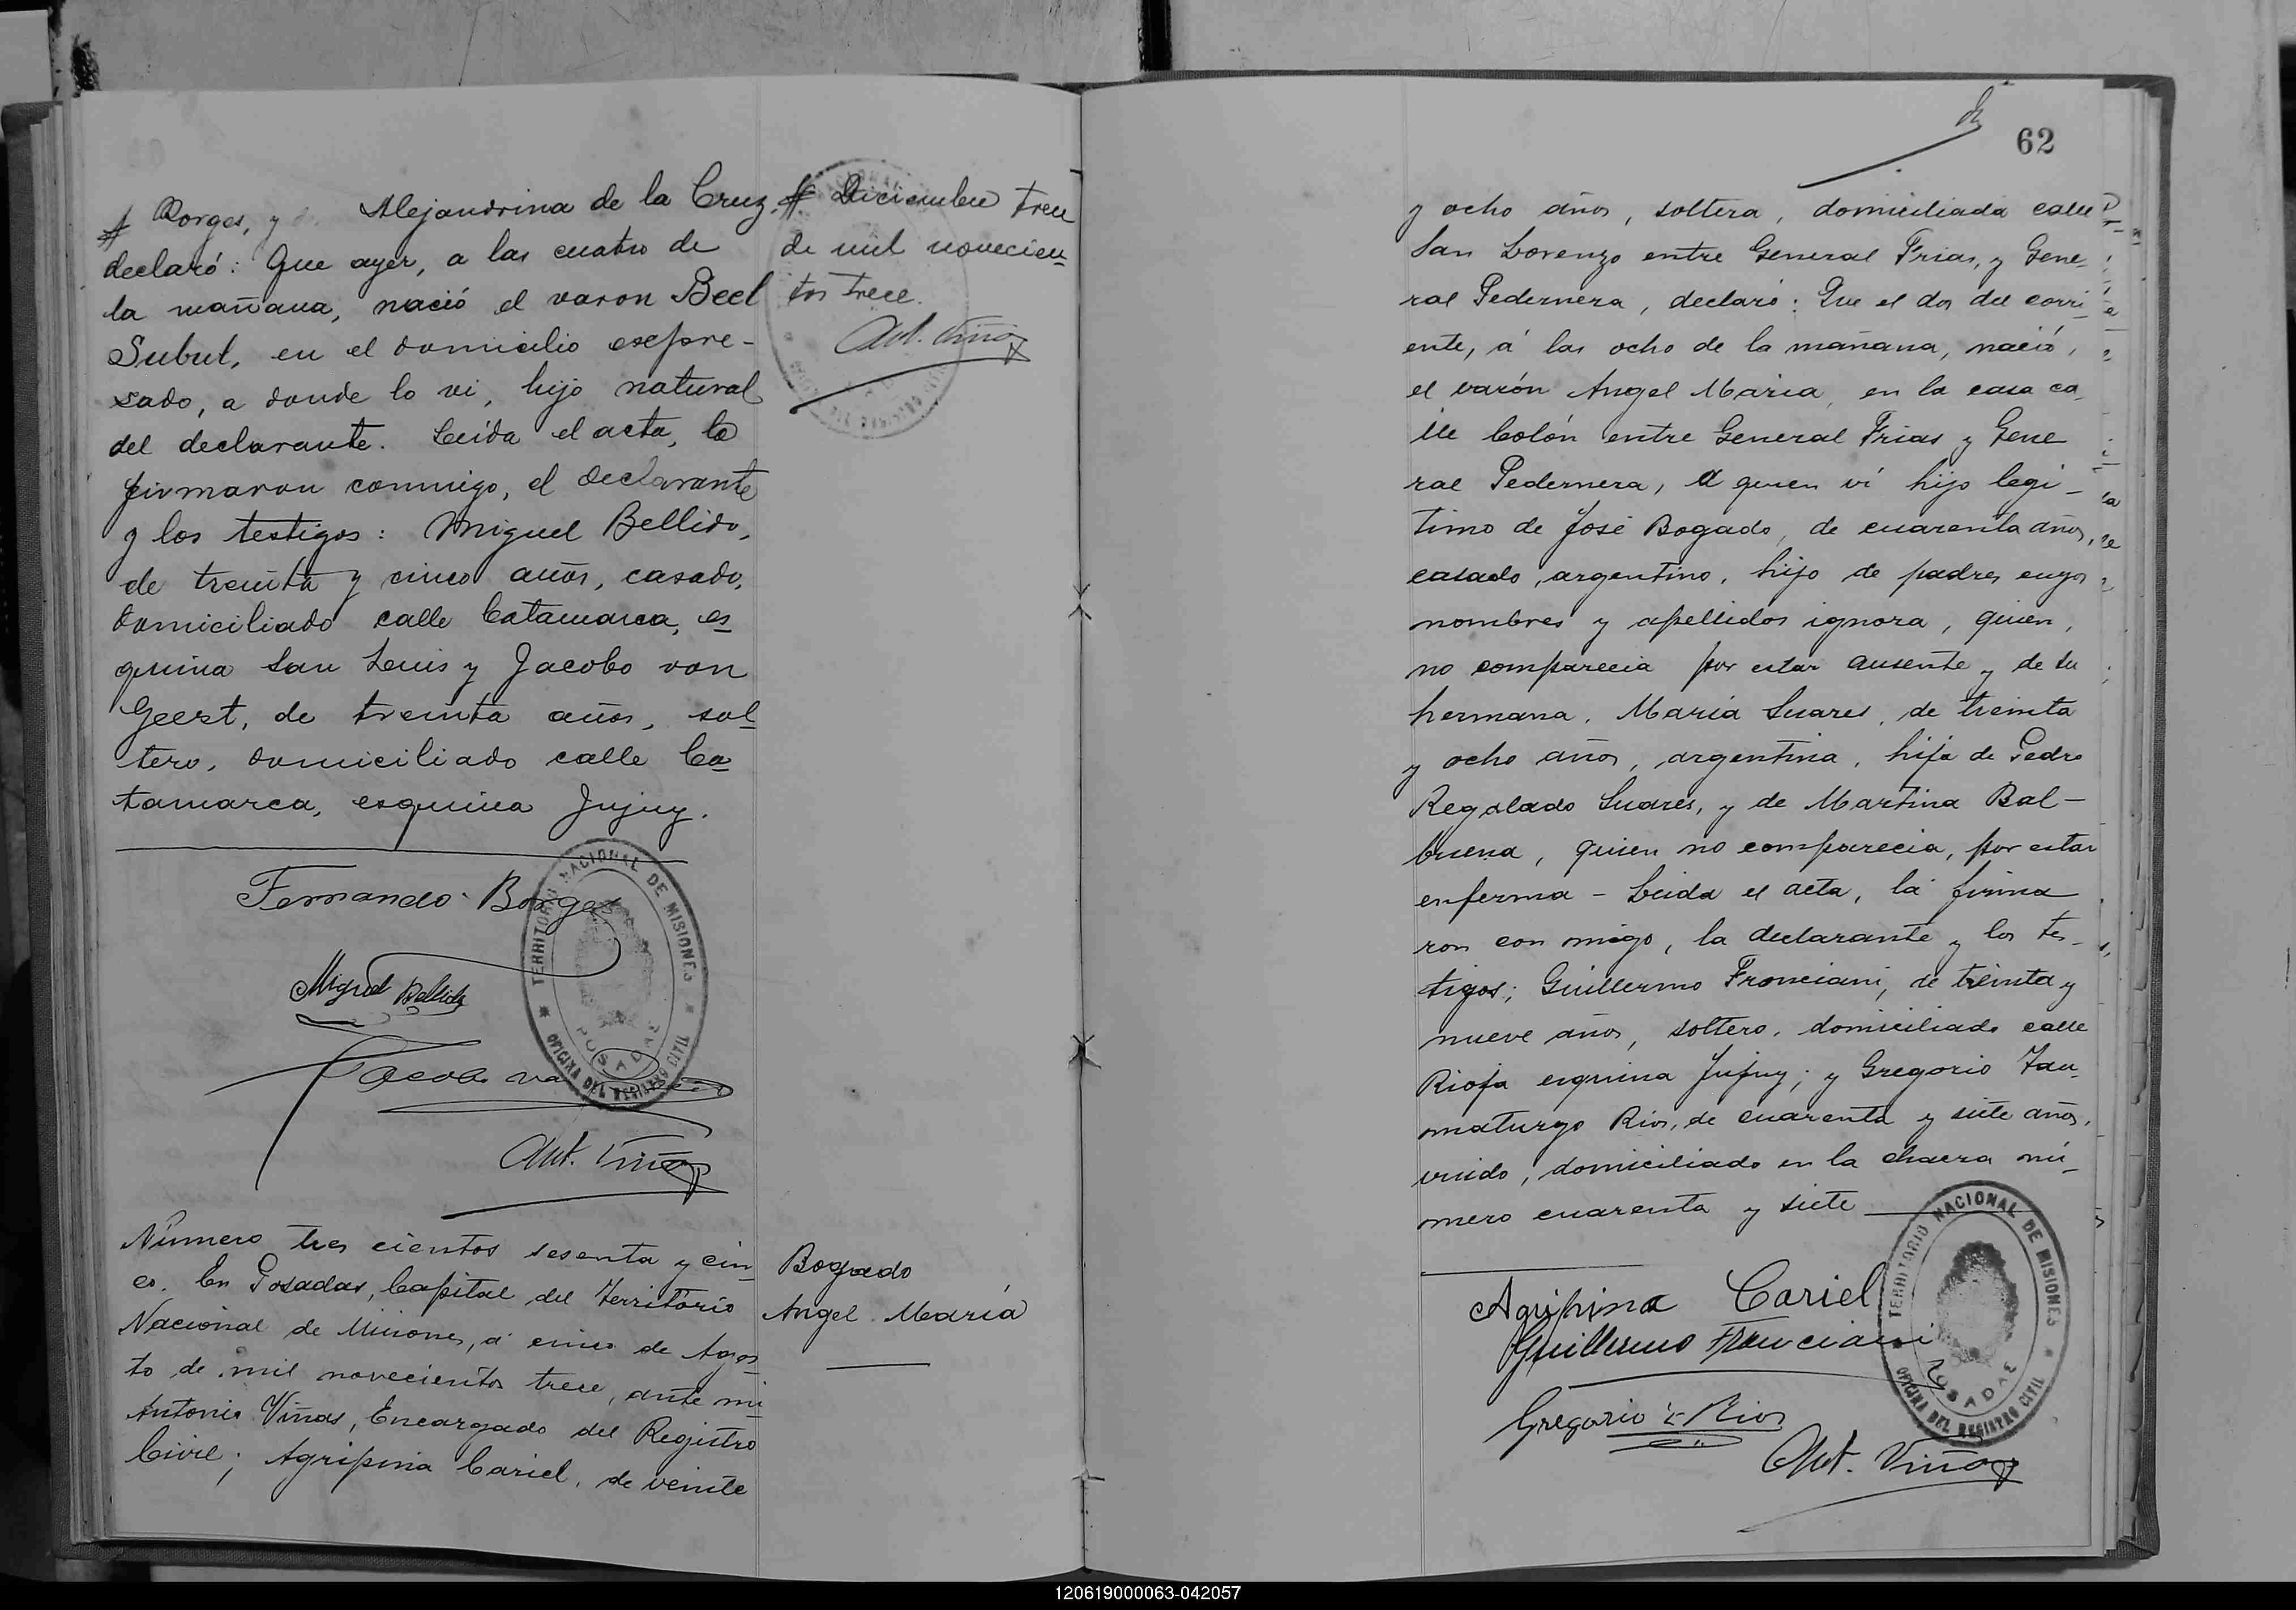 Borges, y Alejandrina de la Cruz
declaró: Que ayer, a las cuatro de
la mañana, nació el varon Beel
Subut, en el domicilio esepre-
sado, a donde lo vi, hijo natural
del declarante. Leida el acta, la
firmaron conmigo, el declarante
y los testigos: Miguel Bellido,
de treinta y cinco años, casado,
domiciliado calle Catamarca, es
quina San Luis y Jacobo van
Geert, de treinta años, sol
tero, domiciliado calle Ca
tamarca, esquina Jujuy.
Fernando Borges
Miguel Bellido
Jacobo va
TERRITORIO NACIONAL DE MISIONES
POSADAS
OFICINA DEL REGISTRO CIVIL
Ant. Viñas
Diciembre trece
de mil novecien-
tos trece.
Ant. Viñas
Número tres cientos sesenta y cin
co. En Posadas, Capital del Territorio
Nacional de Misiones, á cinco de Agos
to de mil novecientos trece, ante mi
Antonio Viñas, Encargado del Registro
Civil; Agripina Cariel, de veinte
Bogado
Angel María
62
y ocho años, soltera, domiciliada calle
San Lorenzo entre General Frias, y Gene-
ral Pedernera, declaró: Que el dos del corri-
ente, á las ocho de la mañana, nació,
el varón Angel Maria, en la casa ca
lle Colón entre General Frias y Gene
ral Pedernera, a quien ví hijo legi-
timo de José Bogado, de cuarenta años,
casado, argentino, hijo de padres cuyos
nombres y apellidos ignora, quien,
no comparecia por estar ausente y de su
hermana, Maria Suares, de treinta
y ocho años, argentina, hija de Pedro
Regalado Suares, y de Martina Bal-
buena, quien no comparecia, por estar
enferma - Leida el acta, la firma
ron con migo, la declarante y los tes-
tigos; Guillermo Franciani, de treinta y
nueve años, soltero, domiciliado calle
Rioja esquina Jujuy; y Gregorio Tau-
maturgo Rios, de cuarenta y siete años,
viudo, domiciliado en la chacra nú-
mero cuarenta y siete
Agripina Cariel
Guillermo Franciani
Gregorio T Rios
Ant. Viñas
TERRITORIO NACIONAL DE MISIONES
POSADAS
OFICINA DEL REGISTRO CIVIL
120619000063-042057